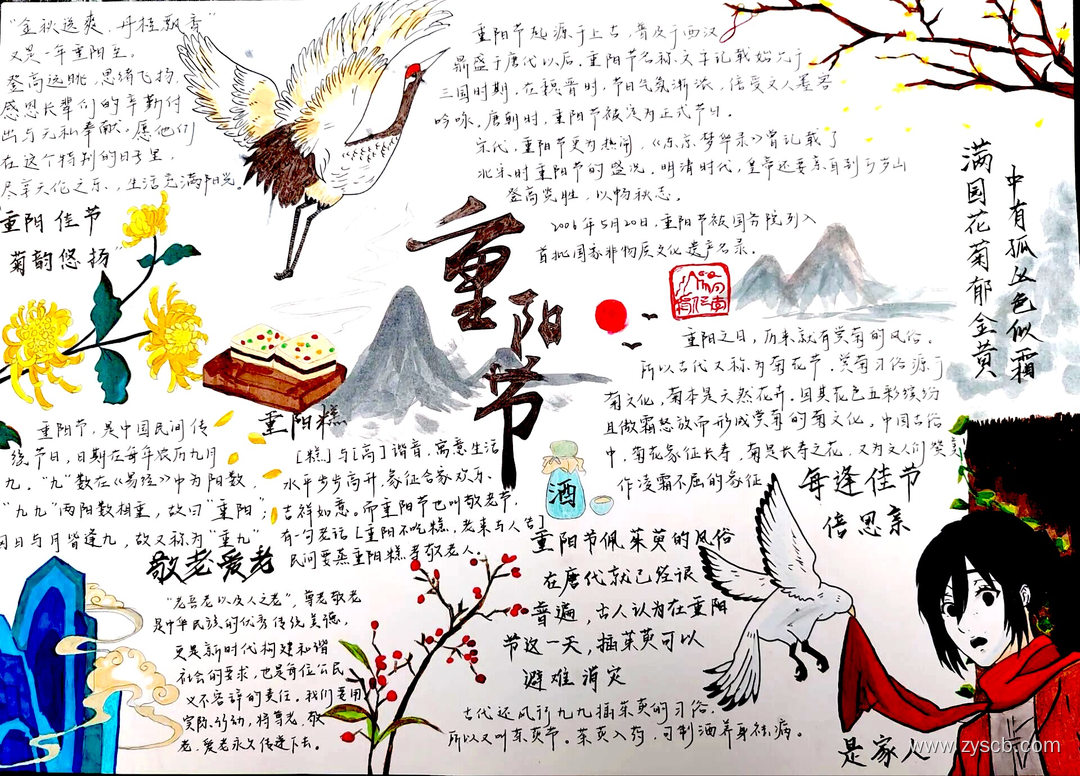 “金秋送爽，丹桂飘香”
又是一年重阳至。
登高远眺，思绪飞扬，
感恩长辈们的辛勤付
出与无私奉献。愿他们
在这个特别的日子里，
尽享天伦之乐，生活充满阳光。
“重阳佳节
菊韵悠扬”
重阳节起源于上古，普及于西汉
鼎盛于唐代以后。重阳节名称文字记载始见于
三国时期，在魏晋时，节日气氛渐浓，倍受文人墨客
吟咏，唐朝时，重阳节被定为正式节日。
宋代，重阳节更为热闹，《东京梦华录》曾记载了
北宋时重阳节的盛况。明清时代，皇帝还要亲自到万岁山
登高览胜，以畅秋志。
2006年5月20日，重阳节被国务院列入
首批国家非物质文化遗产名录。
满园花菊郁金黄
中有孤丛色似霜
重阳节
重阳之日，历来就有赏菊的风俗。
所以古代又称为菊花节。赏菊习俗源于
菊文化，菊本是天然花卉，因其花色五彩缤纷
且傲霜怒放而形成赏菊的菊文化，中国古俗
中，菊花象征长寿，菊是长寿之花，又为文人们赞美
作凌霜不屈的象征
重阳糕
重阳节，是中国民间传
统节日，日期在每年农历九月
九。“九”数在《易经》中为阳数，
“九九”两阳数相重，故曰“重阳”；
因日与月皆逢九，故又称为“重九”
[糕]与[高]谐音，寓意生活
水平步步高升，象征合家欢乐、
吉祥如意。而重阳节也叫敬老节，
有句老话[重阳不吃糕，老来与人告]
民间要蒸重阳糕孝敬老人。
酒
敬老爱老
“老吾老以及人之老”，尊老敬老
是中华民族的优秀传统美德，
更是新时代构建和谐
社会的要求，也是每位公民
义不容辞的责任。我们要用
实际行动，将尊老、敬
老、爱老永久传递下去。
重阳节佩茱萸的风俗
在唐代就已经很
普遍，古人认为在重阳
节这一天，插茱萸可以
避难消灾
古代还风行九九插茱萸的习俗，
所以又叫茱萸节。茱萸入药，可制酒养身祛病。
每逢佳节
倍思亲
是家人
www.zyscb.com